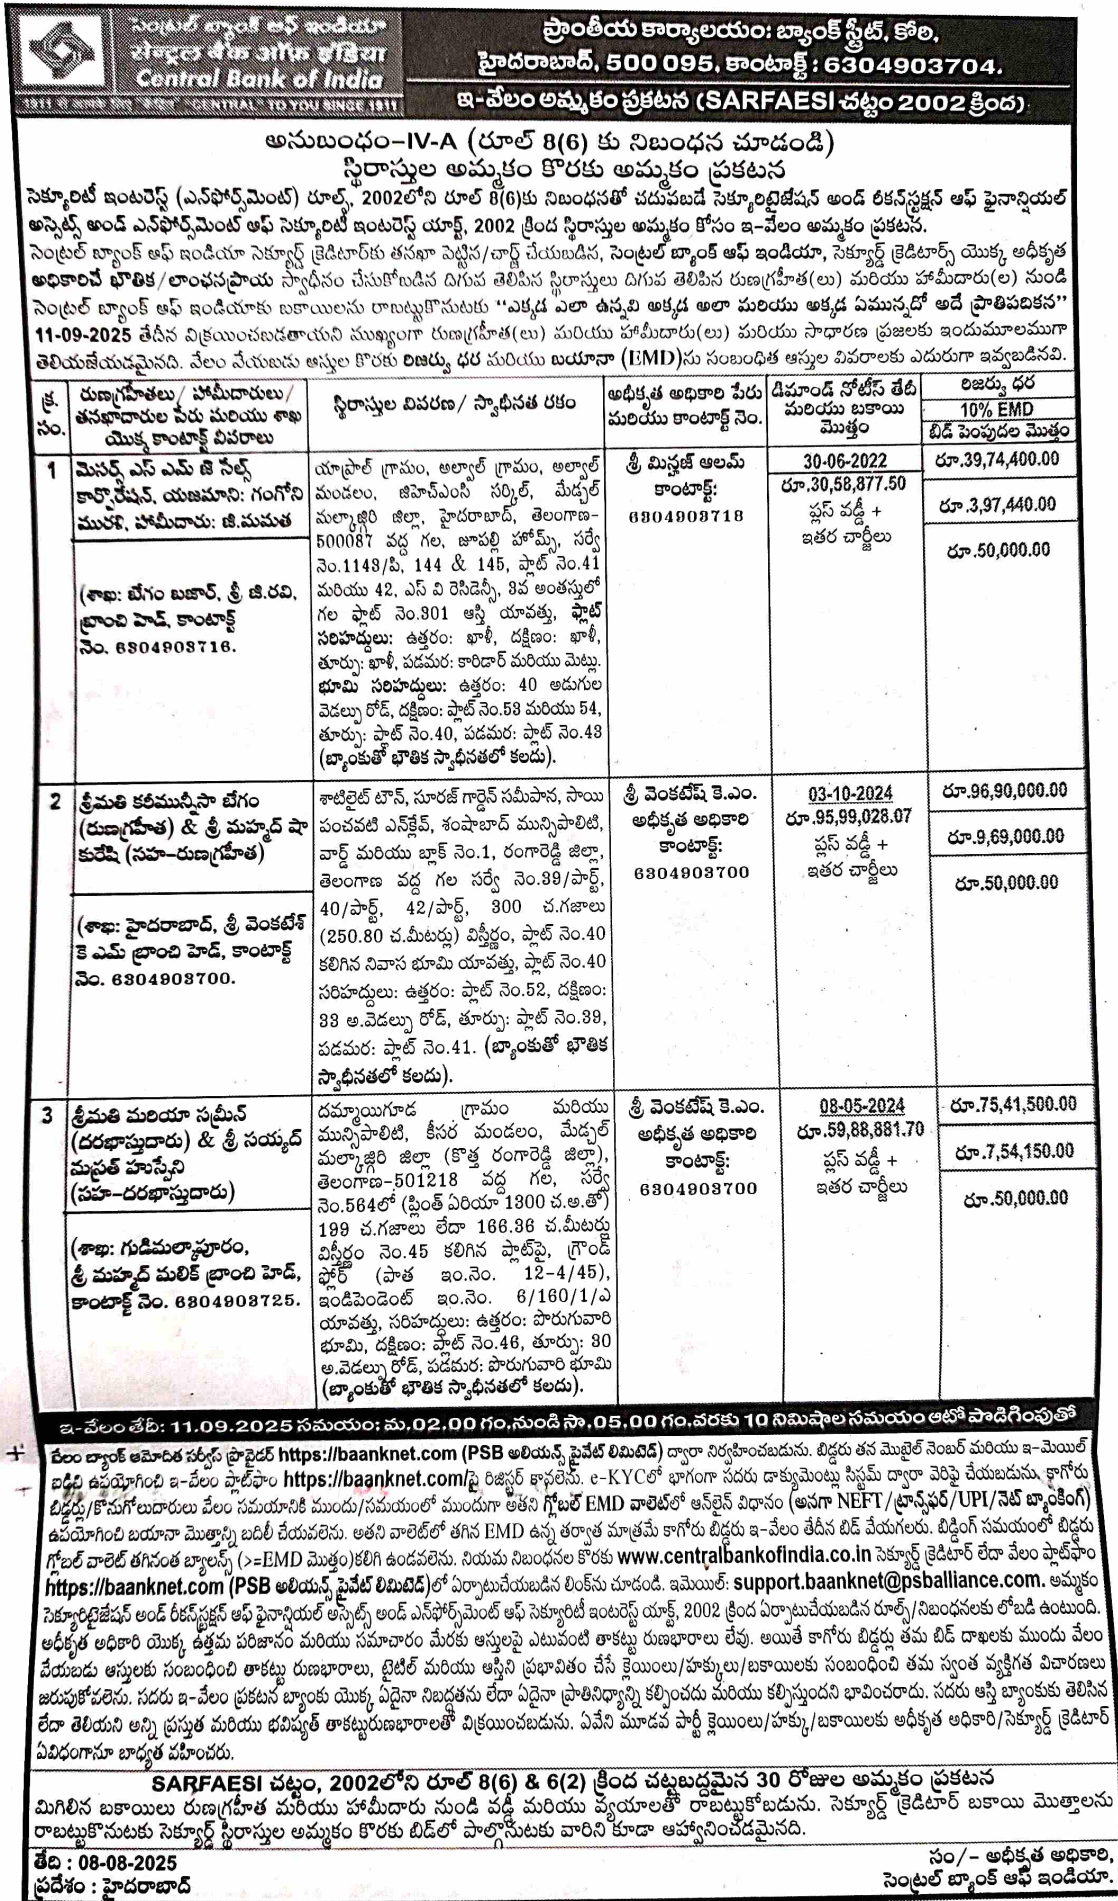 సెంట్రల్ బ్యాంక్ ఆఫ్ ఇండియా
सेन्ट्रल बैंक ऑफ़ इंडिया
Central Bank of India
1911 से आपके लिए "केंद्रित" "CENTRAL" TO YOU SINCE 1911
ప్రాంతీయ కార్యాలయం: బ్యాంక్ స్ట్రీట్, కోఠి,
హైదరాబాద్, 500 095, కాంటాక్ట్ : 6304903704.
ఇ-వేలం అమ్మకం ప్రకటన (SARFAESI చట్టం 2002 క్రింద)
అనుబంధం-IV-A (రూల్ 8(6) కు నిబంధన చూడండి)
స్థిరాస్తుల అమ్మకం కొరకు అమ్మకం ప్రకటన
సెక్యూరిటీ ఇంటరెస్ట్ (ఎన్‌ఫోర్స్‌మెంట్) రూల్స్, 2002లోని రూల్ 8(6)కు నిబంధనతో చదువబడే సెక్యూరిటైజేషన్ అండ్ రీకన్‌స్ట్రక్షన్ ఆఫ్ ఫైనాన్షియల్
అస్సెట్స్ అండ్ ఎన్‌ఫోర్స్‌మెంట్ ఆఫ్ సెక్యూరిటీ ఇంటరెస్ట్ యాక్ట్, 2002 క్రింద స్థిరాస్తుల అమ్మకం కోసం ఇ-వేలం అమ్మకం ప్రకటన.
సెంట్రల్ బ్యాంక్ ఆఫ్ ఇండియా సెక్యూర్డ్ క్రెడిటార్‌కు తనఖా పెట్టిన/చార్జ్ చేయబడిన, సెంట్రల్ బ్యాంక్ ఆఫ్ ఇండియా, సెక్యూర్డ్ క్రెడిటార్స్ యొక్క అధీకృత
అధికారిచే భౌతిక/లాంఛనప్రాయ స్వాధీనం చేసుకోబడిన దిగువ తెలిపిన స్థిరాస్తులు దిగువ తెలిపిన రుణగ్రహీత(లు) మరియు హామీదారు(ల) నుండి
సెంట్రల్ బ్యాంక్ ఆఫ్ ఇండియాకు బకాయిలను రాబట్టుకొనుటకు "ఎక్కడ ఎలా ఉన్నవి అక్కడ అలా మరియు అక్కడ ఏమున్నదో అదే ప్రాతిపదికన"
11-09-2025 తేదీన విక్రయించబడతాయని ముఖ్యంగా రుణగ్రహీత(లు) మరియు హామీదారు(లు) మరియు సాధారణ ప్రజలకు ఇందుమూలముగా
తెలియజేయడమైనది. వేలం వేయబడు ఆస్తుల కొరకు రిజర్వు ధర మరియు బయానా (EMD)ను సంబంధిత ఆస్తుల వివరాలకు ఎదురుగా ఇవ్వబడినవి.
క్ర.
సం.
రుణగ్రహీతలు/ హామీదారులు/
తనఖాదారుల పేరు మరియు శాఖ
యొక్క కాంటాక్ట్ వివరాలు
స్థిరాస్తుల వివరణ/ స్వాధీనత రకం
అధీకృత అధికారి పేరు
మరియు కాంటాక్ట్ నెం.
డిమాండ్ నోటీస్ తేదీ
మరియు బకాయి
మొత్తం
రిజర్వు ధర
10% EMD
బిడ్ పెంపుదల మొత్తం
1
మెసర్స్ ఎస్ ఎమ్ జి సేల్స్
కార్పొరేషన్, యజమాని: గంగోని
మురళి, హామీదారు: జి.మమత
(శాఖ: బేగం బజార్, శ్రీ జి.రవి,
బ్రాంచి హెడ్, కాంటాక్ట్
నెం. 6304903716.
యాప్రాల్ గ్రామం, అల్వాల్ గ్రామం, అల్వాల్
మండలం, జిహెచ్ఎంసి సర్కిల్, మేడ్చల్
మల్కాజ్గిరి జిల్లా, హైదరాబాద్, తెలంగాణ-
500087 వద్ద గల, జూపల్లి హోమ్స్, సర్వే
నెం.1143/పి, 144 & 145, ప్లాట్ నెం.41
మరియు 42, ఎస్ వి రెసిడెన్సీ, 3వ అంతస్తులో
గల ఫ్లాట్ నెం.301 ఆస్తి యావత్తు, ఫ్లాట్
సరిహద్దులు: ఉత్తరం: ఖాళీ, దక్షిణం: ఖాళీ,
తూర్పు: ఖాళీ, పడమర: కారిడార్ మరియు మెట్లు.
భూమి సరిహద్దులు: ఉత్తరం: 40 అడుగుల
వెడల్పు రోడ్, దక్షిణం: ప్లాట్ నెం.53 మరియు 54,
తూర్పు: ప్లాట్ నెం.40, పడమర: ప్లాట్ నెం.43
(బ్యాంకుతో భౌతిక స్వాధీనతలో కలదు).
శ్రీ మిన్హజ్ ఆలమ్
కాంటాక్ట్:
6304903718
30-06-2022
రూ.30,58,877.50
ప్లస్ వడ్డీ +
ఇతర చార్జీలు
రూ.39,74,400.00
రూ.3,97,440.00
రూ.50,000.00
2
శ్రీమతి కరీమున్నీసా బేగం
(రుణగ్రహీత) & శ్రీ మహ్మద్ షా
కురేషి (సహ-రుణగ్రహీత)
(శాఖ: హైదరాబాద్, శ్రీ వెంకటేశ్
కె ఎమ్ బ్రాంచి హెడ్, కాంటాక్ట్
నెం. 6304903700.
శాటిలైట్ టౌన్, సూరజ్ గార్డెన్ సమీపాన, సాయి
పంచవటి ఎన్‌క్లేవ్, శంషాబాద్ మున్సిపాలిటి,
వార్డ్ మరియు బ్లాక్ నెం.1, రంగారెడ్డి జిల్లా,
తెలంగాణ వద్ద గల సర్వే నెం.39/పార్ట్,
40/పార్ట్, 42/పార్ట్, 300 చ.గజాలు
(250.80 చ.మీటర్లు) విస్తీర్ణం, ప్లాట్ నెం.40
కలిగిన నివాస భూమి యావత్తు, ప్లాట్ నెం.40
సరిహద్దులు: ఉత్తరం: ప్లాట్ నెం.52, దక్షిణం:
33 అ.వెడల్పు రోడ్, తూర్పు: ప్లాట్ నెం.39,
పడమర: ప్లాట్ నెం.41. (బ్యాంకుతో భౌతిక
స్వాధీనతలో కలదు).
శ్రీ వెంకటేష్ కె.ఎం.
అధీకృత అధికారి
కాంటాక్ట్:
6304903700
03-10-2024
రూ.95,99,028.07
ప్లస్ వడ్డీ +
ఇతర చార్జీలు
రూ.96,90,000.00
రూ.9,69,000.00
రూ.50,000.00
3
శ్రీమతి మరియా సమ్రీన్
(దరఖాస్తుదారు) & శ్రీ సయ్యద్
మస్రత్ హుస్సేని
(సహ-దరఖాస్తుదారు)
(శాఖ: గుడిమల్కాపూరం,
శ్రీ మహ్మద్ మలిక్ బ్రాంచి హెడ్,
కాంటాక్ట్ నెం. 6304903725.
దమ్మాయిగూడ గ్రామం మరియు
మున్సిపాలిటి, కీసర మండలం, మేడ్చల్
మల్కాజ్గిరి జిల్లా (కొత్త రంగారెడ్డి జిల్లా),
తెలంగాణ-501218 వద్ద గల, సర్వే
నెం.564లో (ప్లింత్ ఏరియా 1300 చ.అ.తో)
199 చ.గజాలు లేదా 166.36 చ.మీటర్లు
విస్తీర్ణం నెం.45 కలిగిన ప్లాట్‌పై, గ్రౌండ్
ఫ్లోర్ (పాత ఇం.నెం. 12-4/45),
ఇండిపెండెంట్ ఇం.నెం. 6/160/1/ఎ
యావత్తు, సరిహద్దులు: ఉత్తరం: పొరుగువారి
భూమి, దక్షిణం: ప్లాట్ నెం.46, తూర్పు: 30
అ.వెడల్పు రోడ్, పడమర: పొరుగువారి భూమి
(బ్యాంకుతో భౌతిక స్వాధీనతలో కలదు).
శ్రీ వెంకటేష్ కె.ఎం.
అధీకృత అధికారి
కాంటాక్ట్:
6304903700
08-05-2024
రూ.59,88,881.70
ప్లస్ వడ్డీ +
ఇతర చార్జీలు
రూ.75,41,500.00
రూ.7,54,150.00
రూ.50,000.00
ఇ-వేలం తేదీ: 11.09.2025 సమయం: మ.02.00 గం.నుండి సా.05.00 గం.వరకు 10 నిమిషాల సమయం ఆటో పొడిగింపుతో
వేలం బ్యాంక్ ఆమోదిత సర్వీస్ ప్రొవైడర్ https://baanknet.com (PSB అలియన్స్ ప్రైవేట్ లిమిటెడ్) ద్వారా నిర్వహించబడును. బిడ్డరు తన మొబైల్ నెంబర్ మరియు ఇ-మెయిల్
ఐడిని ఉపయోగించి ఇ-వేలం ప్లాట్‌ఫాం https://baanknet.com/పై రిజిస్టర్ కావలెను. e-KYCలో భాగంగా సదరు డాక్యుమెంట్లు సిస్టమ్ ద్వారా వెరిఫై చేయబడును. కాగోరు
బిడ్డర్లు/కొనుగోలుదారులు వేలం సమయానికి ముందు/సమయంలో ముందుగా అతని గ్లోబల్ EMD వాలెట్‌లో ఆన్‌లైన్ విధానం (అనగా NEFT/ట్రాన్స్‌ఫర్/UPI/నెట్ బ్యాంకింగ్)
ఉపయోగించి బయానా మొత్తాన్ని బదిలీ చేయవలెను. అతని వాలెట్‌లో తగిన EMD ఉన్న తర్వాత మాత్రమే కాగోరు బిడ్డరు ఇ-వేలం తేదీన బిడ్ వేయగలరు. బిడ్డింగ్ సమయంలో బిడ్డరు
గ్లోబల్ వాలెట్ తగినంత బ్యాలన్స్ (>=EMD మొత్తం)కలిగి ఉండవలెను. నియమ నిబంధనల కొరకు www.centralbankofindia.co.in సెక్యూర్డ్ క్రెడిటార్ లేదా వేలం ప్లాట్‌ఫాం
https://baanknet.com (PSB అలియన్స్ ప్రైవేట్ లిమిటెడ్)లో ఏర్పాటుచేయబడిన లింక్‌ను చూడండి. ఇమెయిల్: support.baanknet@psballiance.com. అమ్మకం
సెక్యూరిటైజేషన్ అండ్ రీకన్‌స్ట్రక్షన్ ఆఫ్ ఫైనాన్షియల్ అస్సెట్స్ అండ్ ఎన్‌ఫోర్స్‌మెంట్ ఆఫ్ సెక్యూరిటీ ఇంటరెస్ట్ యాక్ట్, 2002 క్రింద ఏర్పాటుచేయబడిన రూల్స్/నిబంధనలకు లోబడి ఉంటుంది.
అధీకృత అధికారి యొక్క ఉత్తమ పరిజ్ఞానం మరియు సమాచారం మేరకు ఆస్తులపై ఎటువంటి తాకట్టు రుణభారాలు లేవు. అయితే కాగోరు బిడ్డర్లు తమ బిడ్ దాఖలకు ముందు వేలం
వేయబడు ఆస్తులకు సంబంధించి తాకట్టు రుణభారాలు, టైటిల్ మరియు ఆస్తిని ప్రభావితం చేసే క్లెయింలు/హక్కులు/బకాయిలకు సంబంధించి తమ స్వంత వ్యక్తిగత విచారణలు
జరుపుకోవలెను. సదరు ఇ-వేలం ప్రకటన బ్యాంకు యొక్క ఏదైనా నిబద్ధతను లేదా ఏదైనా ప్రాతినిధ్యాన్ని కల్పించదు మరియు కల్పిస్తుందని భావించరాదు. సదరు ఆస్తి బ్యాంకుకు తెలిసిన
లేదా తెలియని అన్ని ప్రస్తుత మరియు భవిష్యత్ తాకట్టురుణభారాలతో విక్రయించబడును. ఏవేని మూడవ పార్టీ క్లెయింలు/హక్కు/బకాయిలకు అధీకృత అధికారి/సెక్యూర్డ్ క్రెడిటార్
ఏవిధంగానూ బాధ్యత వహించరు.
SARFAESI చట్టం, 2002లోని రూల్ 8(6) & 6(2) క్రింద చట్టబద్ధమైన 30 రోజుల అమ్మకం ప్రకటన
మిగిలిన బకాయిలు రుణగ్రహీత మరియు హామీదారు నుండి వడ్డీ మరియు వ్యయాలతో రాబట్టుకోబడును. సెక్యూర్డ్ క్రెడిటార్ బకాయి మొత్తాలను
రాబట్టుకొనుటకు సెక్యూర్డ్ స్థిరాస్తుల అమ్మకం కొరకు బిడ్‌లో పాల్గొనుటకు వారిని కూడా ఆహ్వానించడమైనది.
తేది : 08-08-2025
ప్రదేశం : హైదరాబాద్
సం/- అధీకృత అధికారి,
సెంట్రల్ బ్యాంక్ ఆఫ్ ఇండియా.